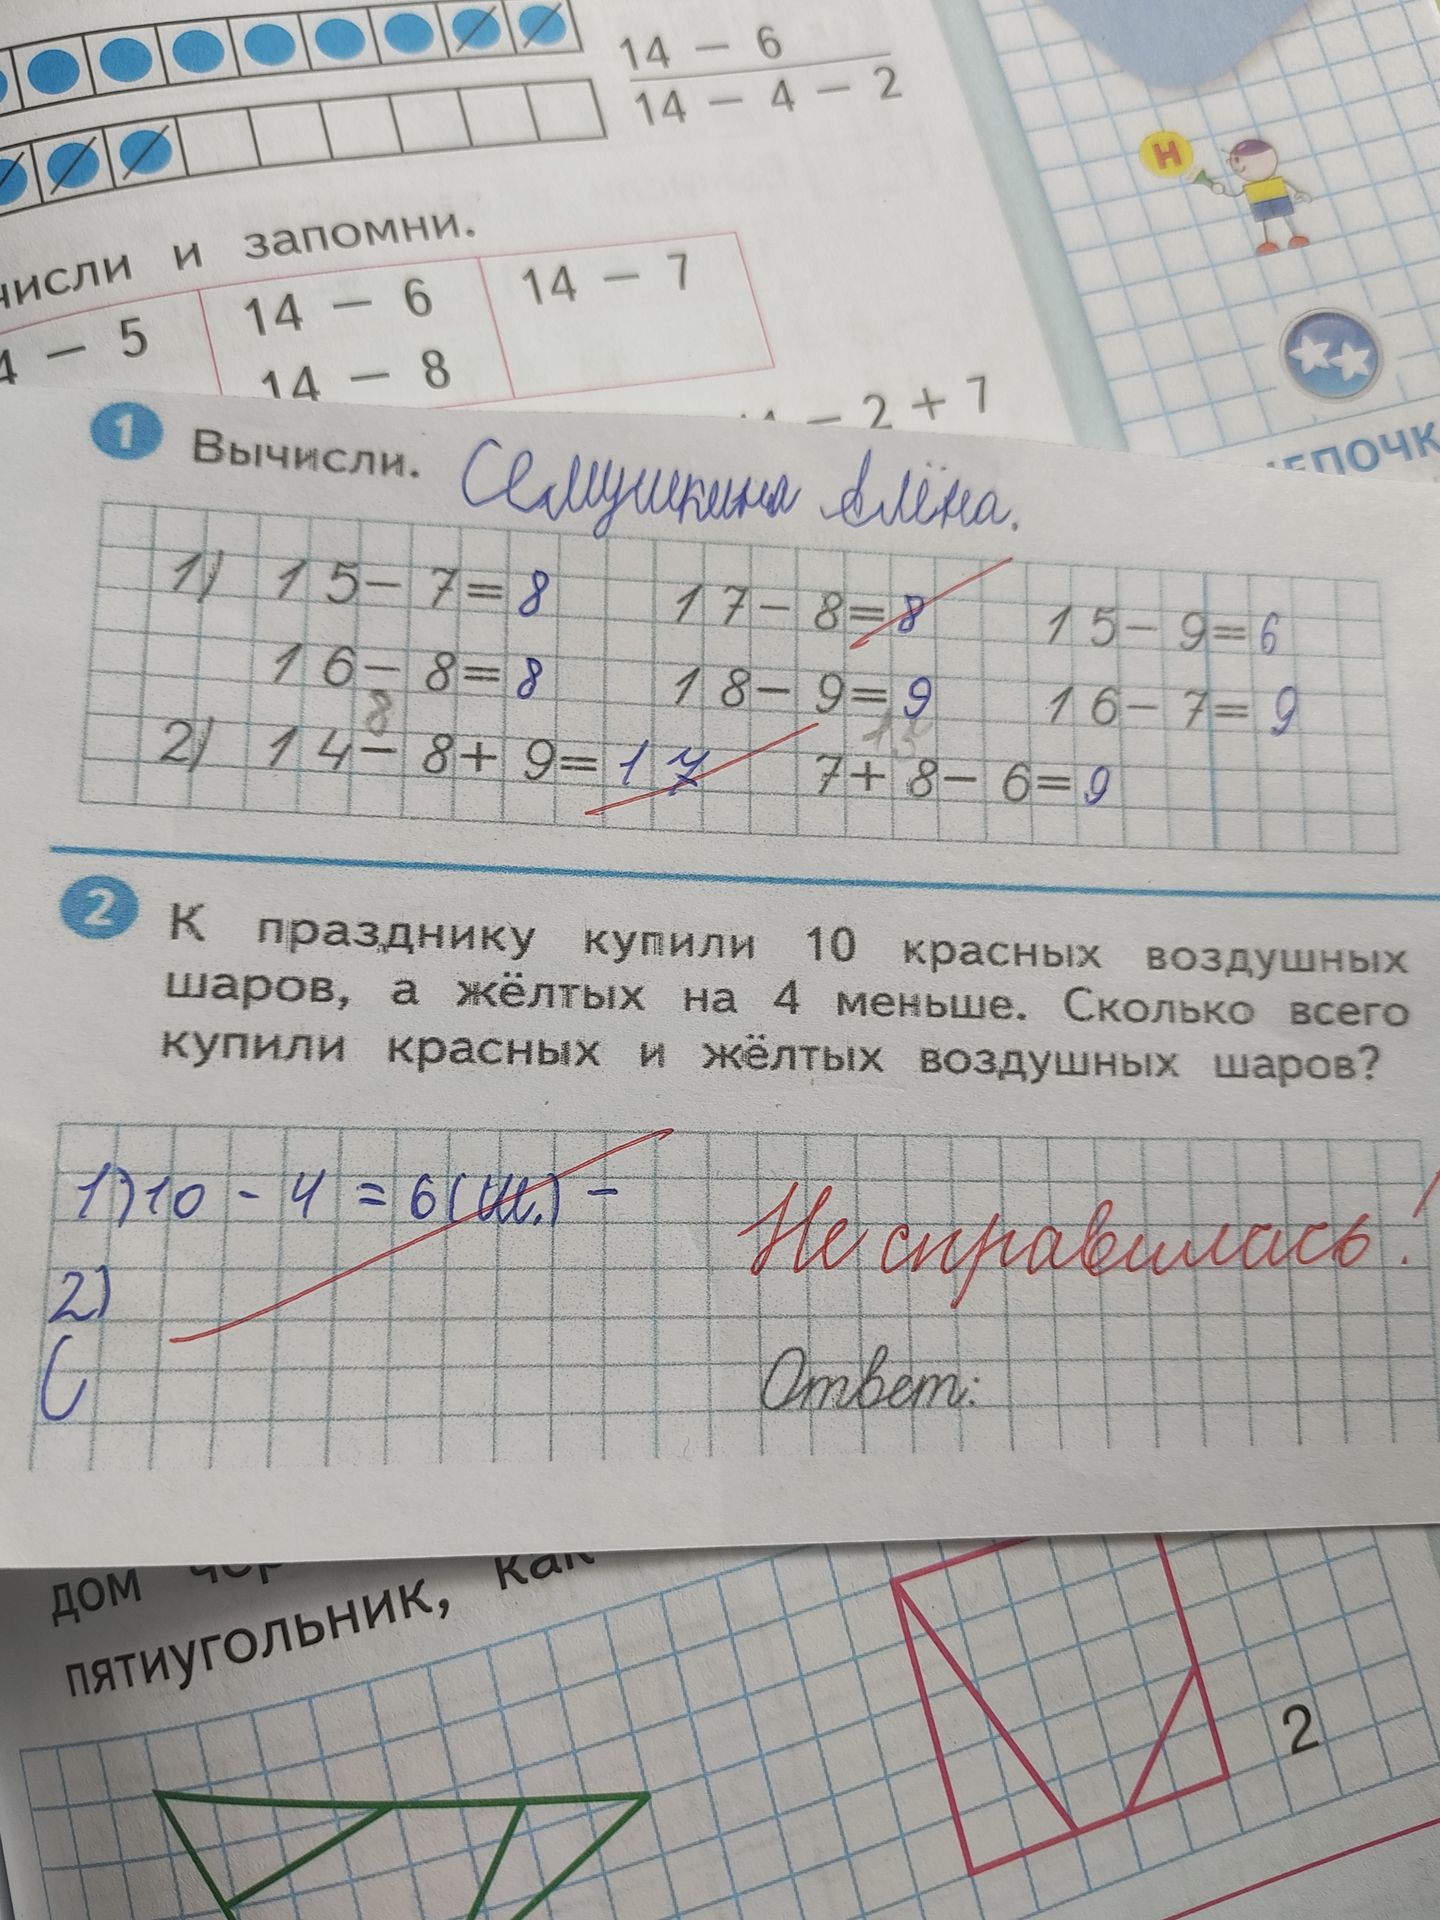 14 − 6
14 − 4 − 2
Н
числи и запомни.
4 − 5
14 − 6
14 − 7
14 − 8
− 2 + 7
ЕПОЧК
1 Вычисли. Семушкина Алёна.
1) 15−7=8 17−8=8 15−9=6
16−8=8 18−9=9 16−7=9
8 15
2) 14−8+9=17 7+8−6=9
2 К празднику купили 10 красных воздушных
шаров, а жёлтых на 4 меньше. Сколько всего
купили красных и жёлтых воздушных шаров?
1) 10 - 4 = 6 (ш.) -
Не справилась!
2)
Ответ:
дом
пятиугольник, как
2